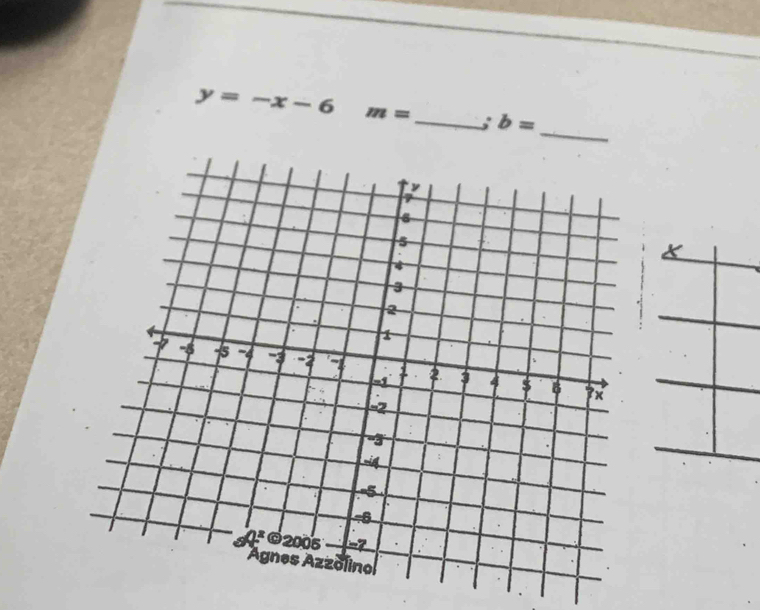 y = -x - 6 m = ____; b = ____
y
7
6
5
4
3
2
1
-7 -6 -5 -4 -3 -2 -1 1 2 3 4 5 6 7 x
-1
-2
-3
-4
-5
-6
-7
©2005
Agnes Azzolino
x